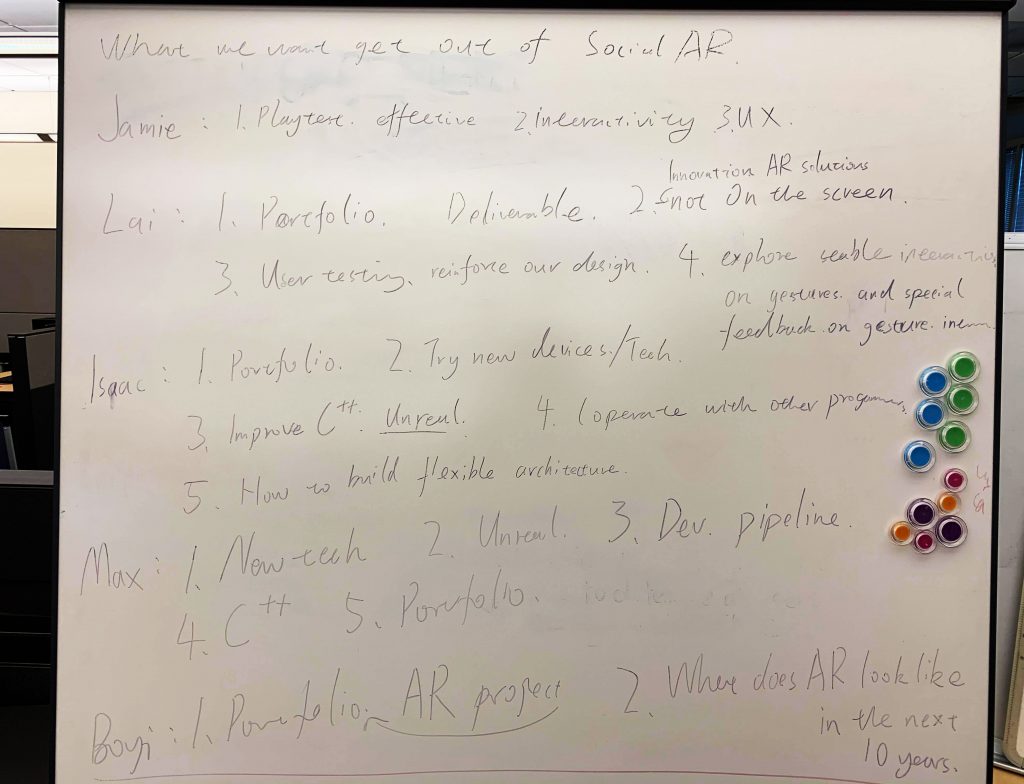 What we want get out of Social AR.
Jamie : 1. Playtest. effective 2. Interactivity 3. UX.
Innovation AR solutions
Lai : 1. Portfolio. Deliverable. 2. not On the screen.
3. User testing. reinforce our design. 4. explore
on gestures. and special
feedback on gesture.
Isaac : 1. Portfolio. 2. Try new devices/Tech.
3. Improve C++. Unreal. 4. Coperate with other
5. How to build flexible architecture.
Max : 1. New tech 2. Unreal. 3. Dev. pipeline.
4. C++ 5. Portfolio.
Boyi : 1. Portfolio. AR project 2. Where does AR look like
in the next
10 years.